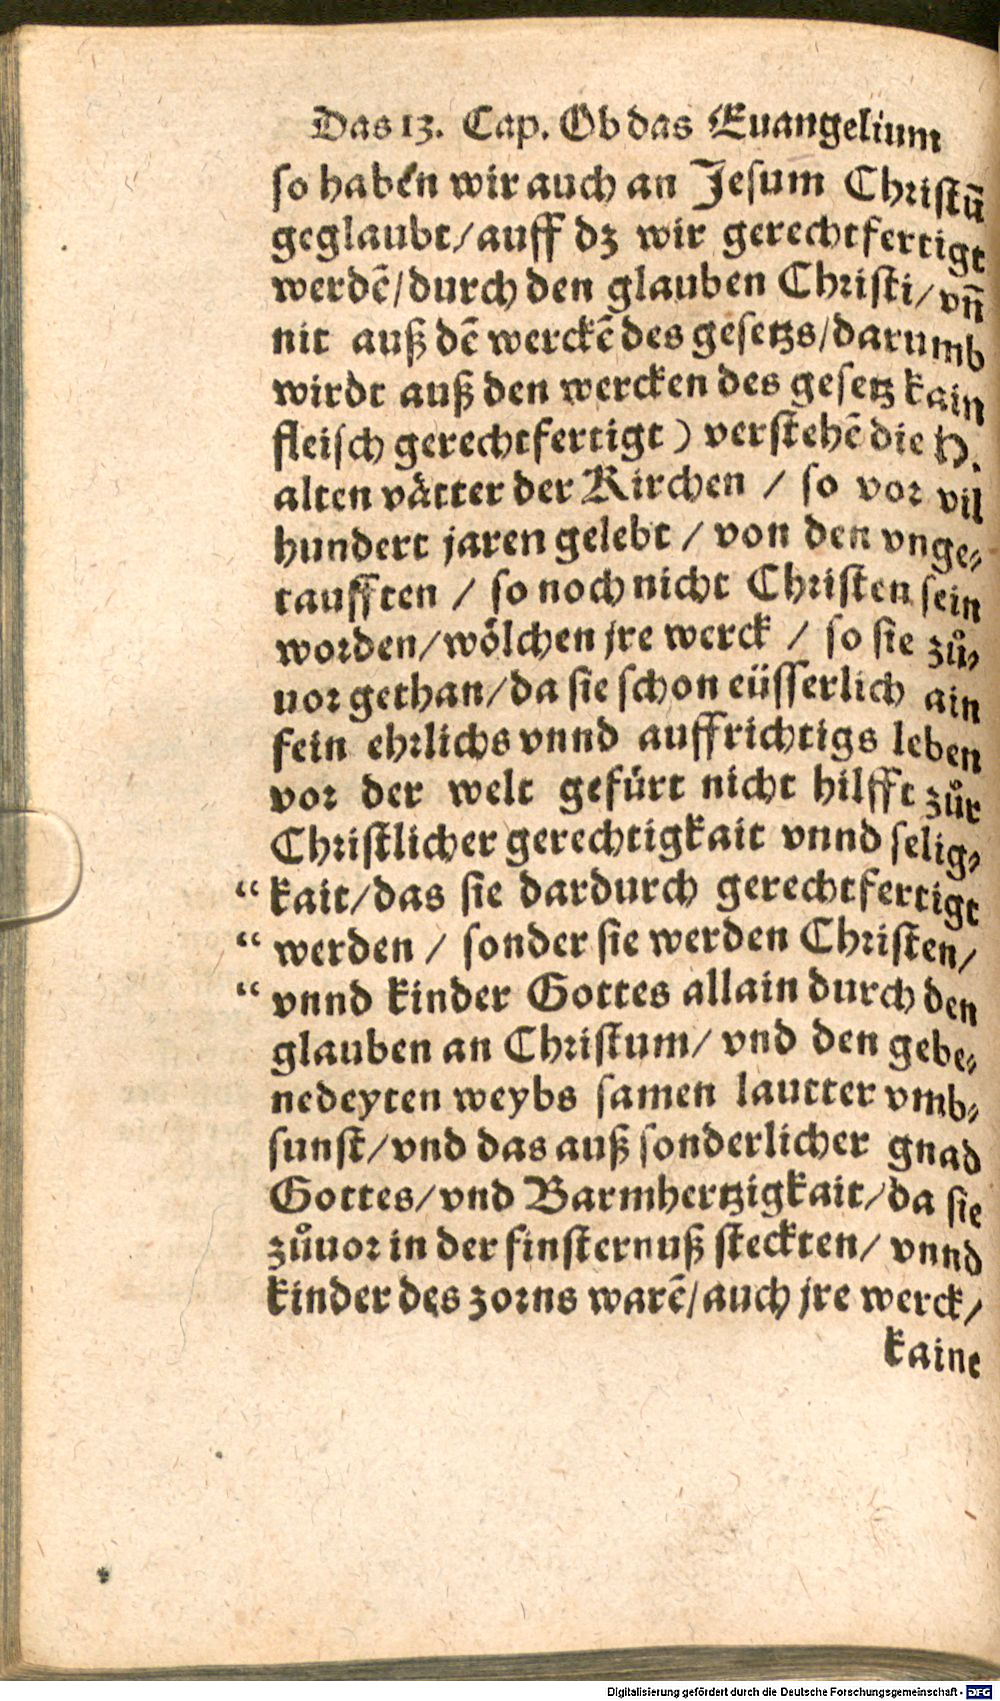 Das 13. Cap. Ob das Euangelium
so haben wir auch an Jesum Christū
geglaubt/auff dz wir gerechtfertigt
werdē/durch den glauben Christi/ vn̄
nit auß dē werckē des gesetzs/darumb
wirdt auß den wercken des gesetz kain
fleisch gerechtfertigt) verstehē die H.
alten vätter der Kirchen / so vor vil
hundert jaren gelebt / von den vnge⸗
taufften / so noch nicht Christen sein
worden/wölchen jre werck / so sie zů⸗
uor gethan/da sie schon eüsserlich ain
fein ehrlichs vnnd auffrichtigs leben
vor der welt gefürt nicht hilfft zůr
Christlicher gerechtigkait vnnd selig⸗
“ kait/das sie dardurch gerechtfertigt
“ werden / sonder sie werden Christen/
“ vnnd kinder Gottes allain durch den
glauben an Christum/ vnd den gebe⸗
nedeyten weybs samen lautter vmb⸗
sunst/vnd das auß sonderlicher gnad
Gottes/vnd Barmhertzigkait/da sie
zůuor in der finsternuß steckten/ vnnd
kinder des zorns warē/auch jre werck/
kaine
Digitalisierung gefördert durch die Deutsche Forschungsgemeinschaft - DFG